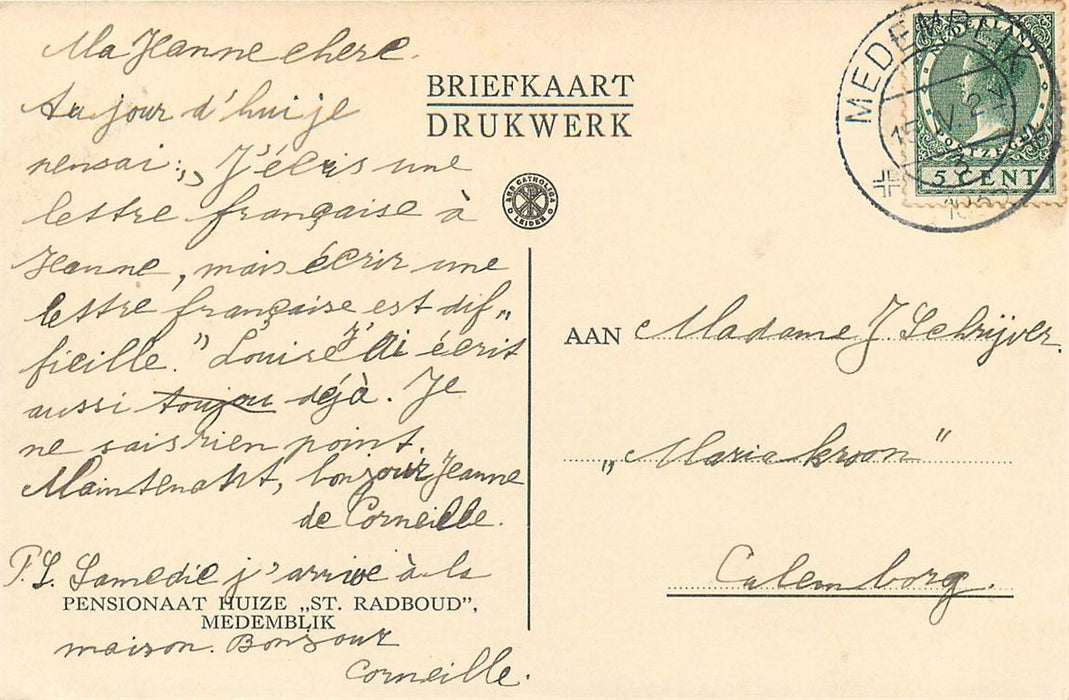 Ma Jeanne chere.
Au jour d'hui je
pensai: „J'écris une
lettre française à
Jeanne, mais écrir une
lettre française est dif„
ficille." Louise J'ai écrit
aussi toujou déjà. Je
ne sais rien point.
Maintenant, bonjour Jeanne
de Corneille.
P.S. Samedie j'arrive à la
PENSIONAAT HUIZE „ST. RADBOUD",
MEDEMBLIK
maison. Bonjour
Corneille.
BRIEFKAART
DRUKWERK
ARS CATHOLICA
LEIDEN
MEDEMBLIK
NEDERLAND
POSTZEGEL
5 CENT
AAN Madame J Schrijver.
„Mariakroon"
Culemborg.